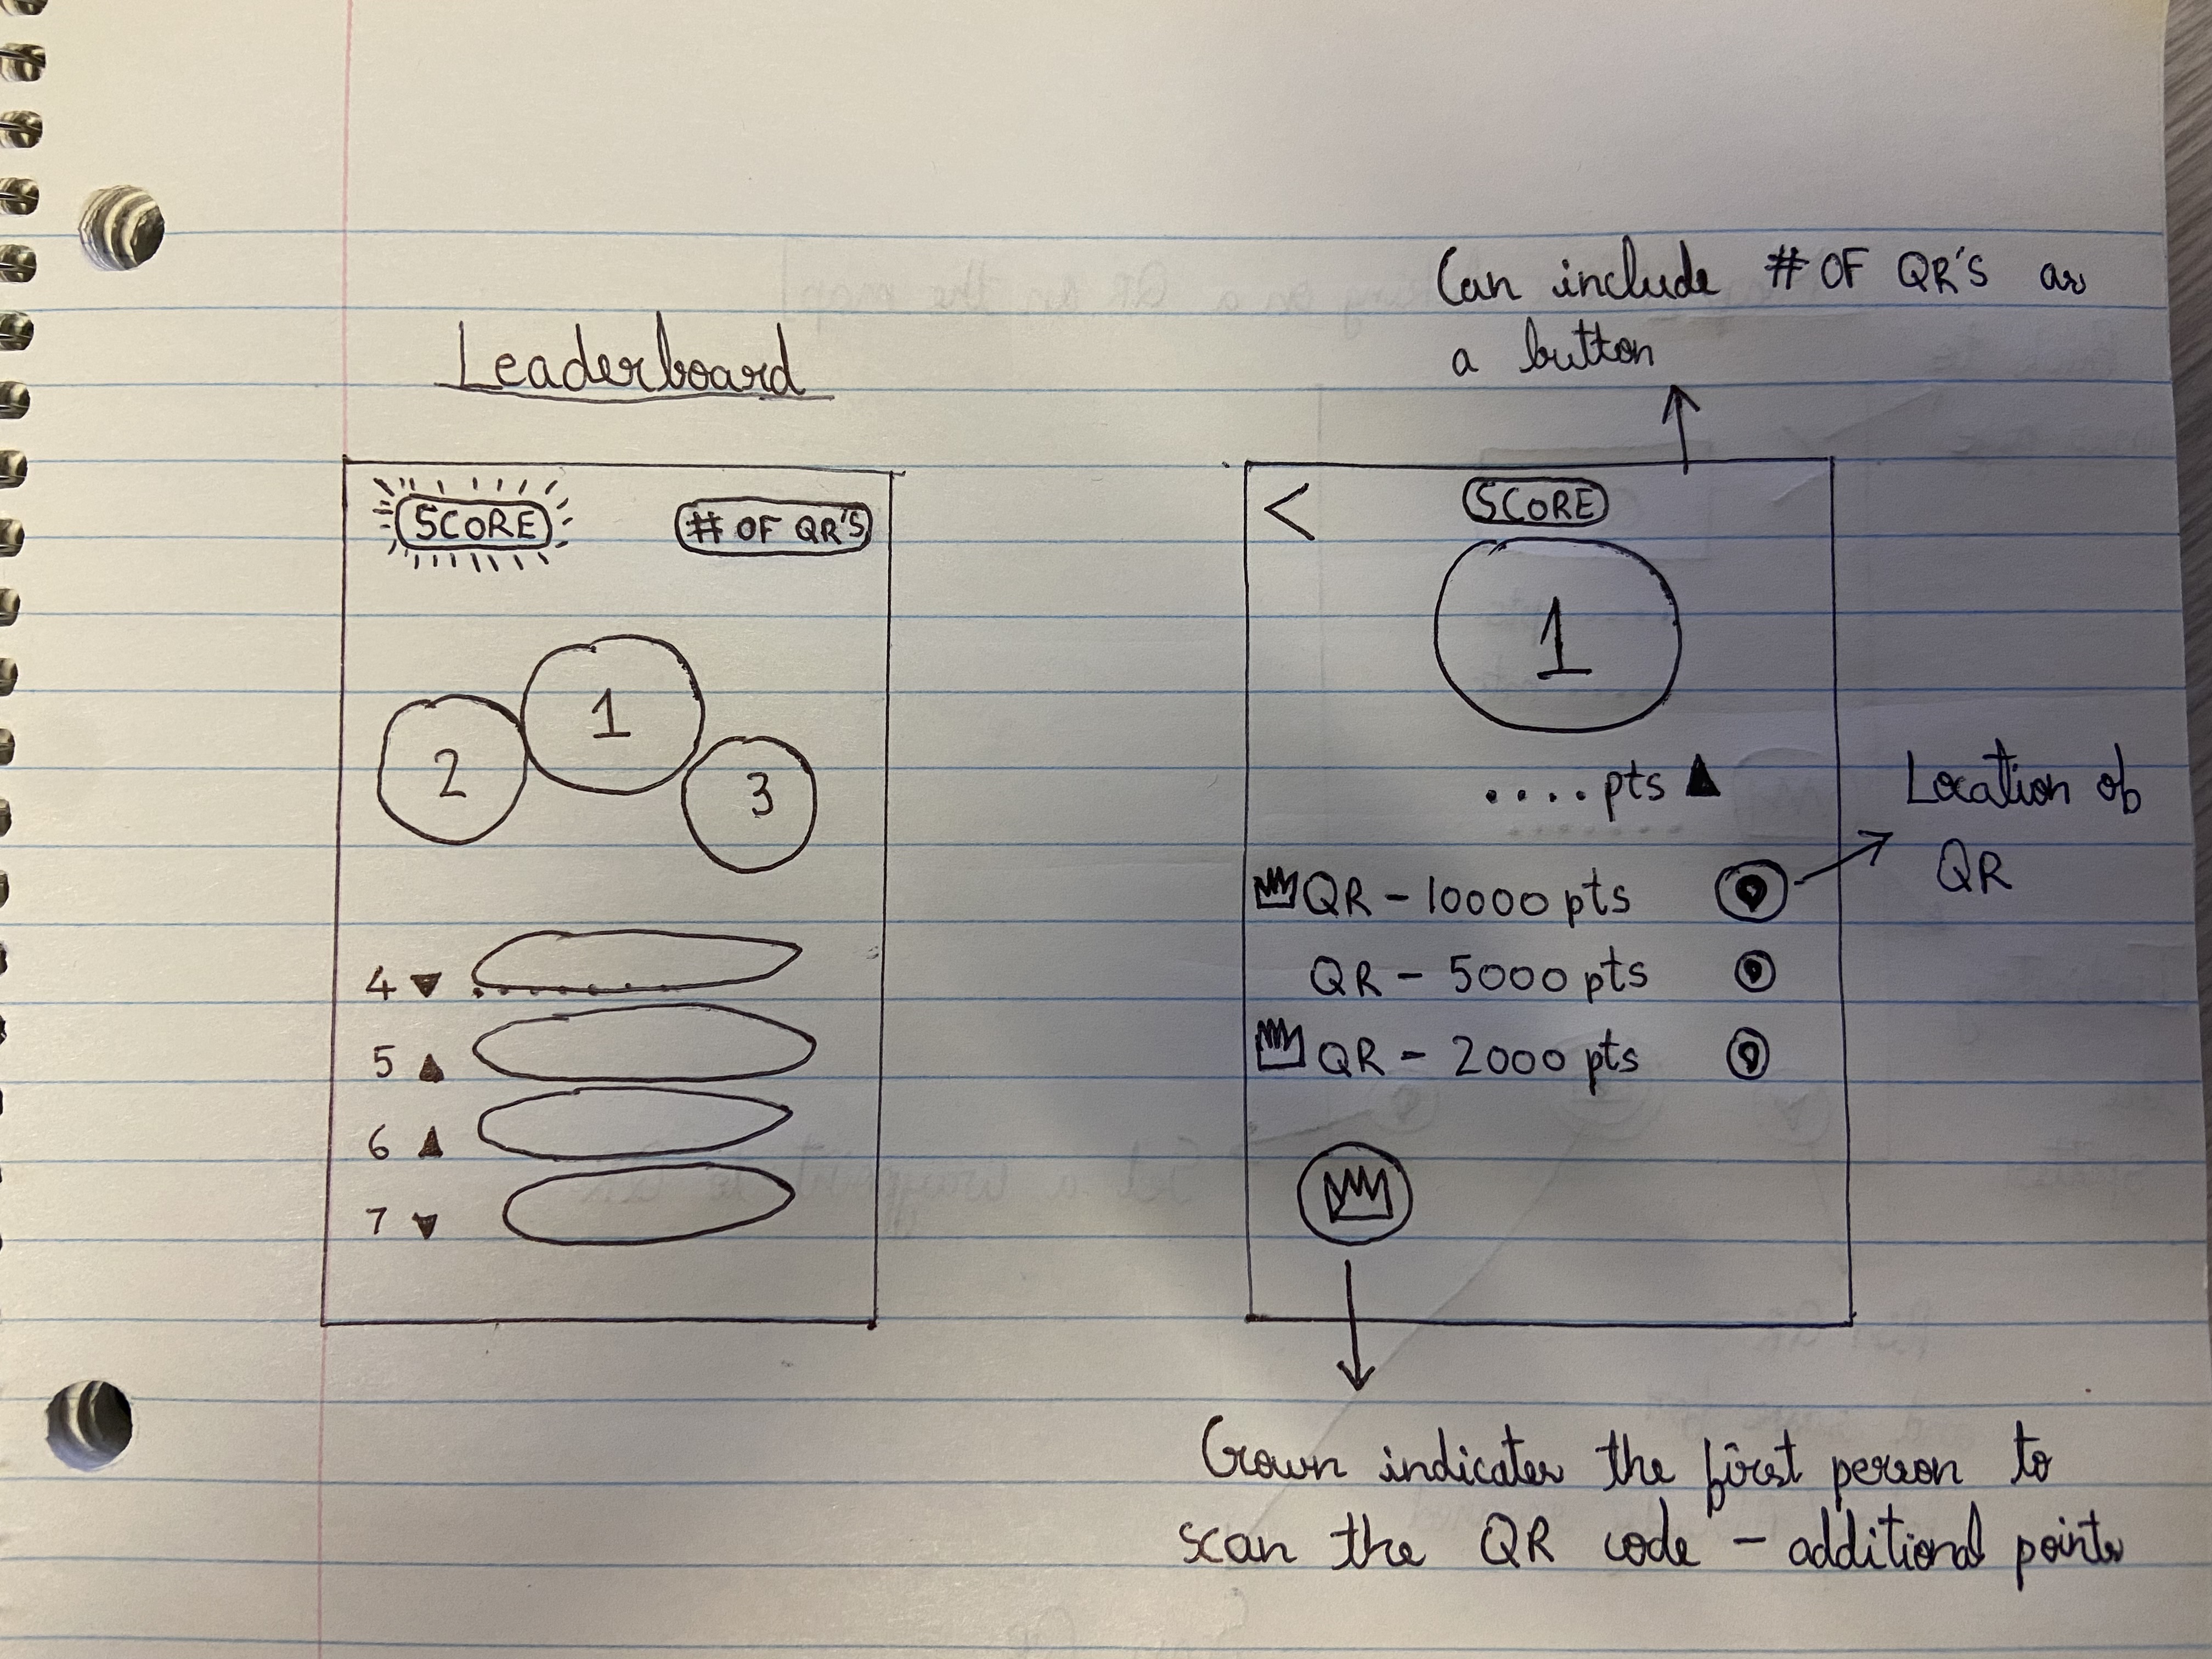 Leaderboard
SCORE # OF QR'S
1
2
3
4
5
6
7
Can include # OF QR's as
a button
<
SCORE
1
....pts
QR - 10000 pts
QR - 5000 pts
QR - 2000 pts
Location of
QR
Crown indicates the first person to
scan the QR code - additional points